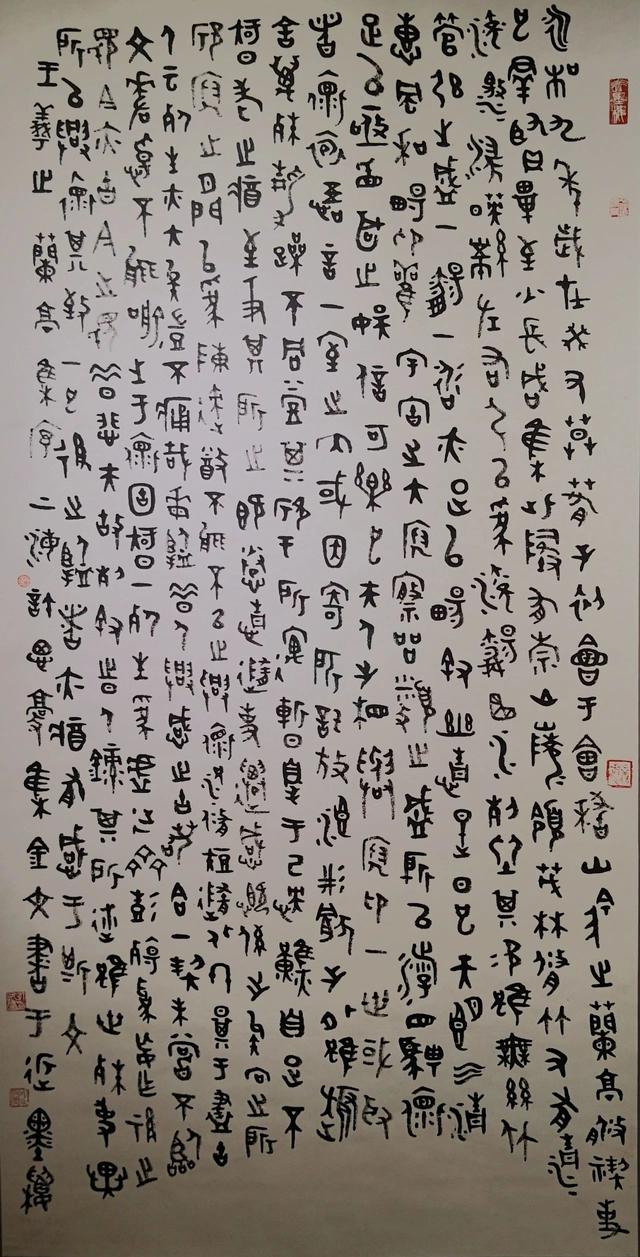 永和九年歲在癸丑暮春之初會于會稽山陰之蘭亭脩禊事
也羣賢畢至少長咸集此地有崇山峻領茂林脩竹又有清流
激湍映帶左右引以為流觴曲水列坐其次雖無絲竹
管弦之盛一觴一詠亦足以暢敘幽情是日也天朗氣清
惠風和暢仰觀宇宙之大俯察品類之盛所以遊目騁懷
足以極視聽之娛信可樂也夫人之相與俯仰一世或取
諸懷抱悟言一室之內或因寄所託放浪形骸之外雖趣
舍萬殊靜躁不同當其欣于所遇暫得于己快然自足不
知老之將至及其所之既倦情隨事遷感慨係之矣向之所
欣俛仰之間以為陳迹猶不能不以之興懷況脩短隨化終期于盡古
人云死生亦大矣豈不痛哉每覽昔人興感之由若合一契未嘗不臨
文嗟悼不能喻之于懷固知一死生為虛誕齊彭殤為妄作後之
視今亦由今之視昔悲夫故列敘時人錄其所述雖世殊事異
所以興懷其致一也後之覽者亦將有感于斯文
王羲之蘭亭集序集金文書于